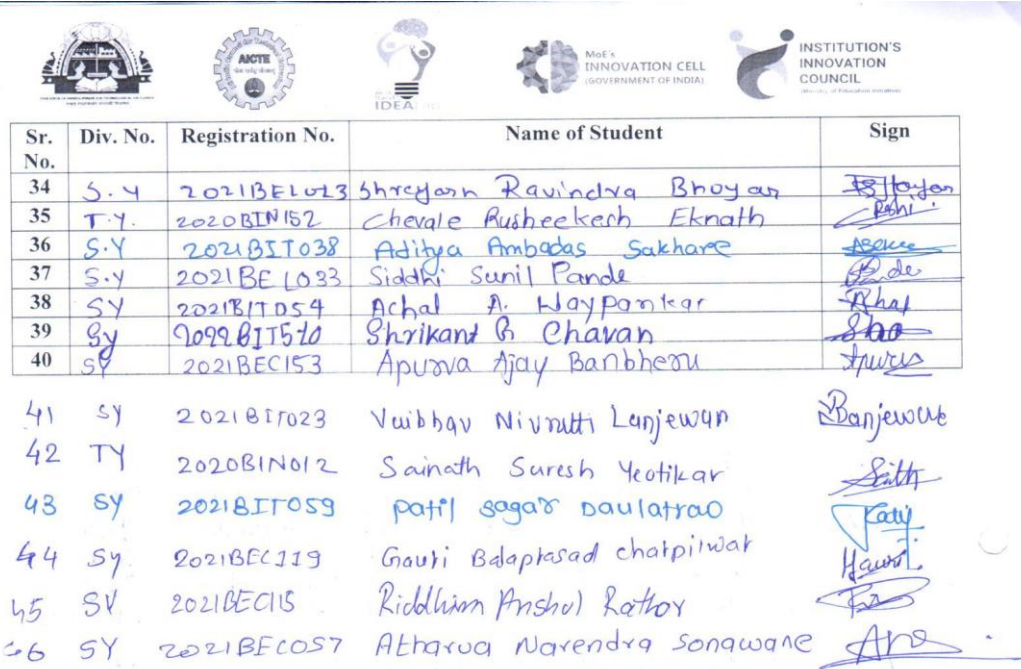 AICTE
IDEA
MoE's
INNOVATION CELL
(GOVERNMENT OF INDIA)
INSTITUTION'S
INNOVATION
COUNCIL
(Ministry of Education Initiative)
Sr. No. Div. No. Registration No. Name of Student Sign
34 S.Y 2021BEL023 Shreyash Ravindra Bhoyar
35 T.Y. 2020BIN152 Chevale Rusheekesh Eknath Rshi.
36 S.Y 2021BIT038 Aditya Ambadas Sakhare
37 S.Y 2021BEL033 Siddhi Sunil Pande Pande
38 SY 2021BIT054 Achal A. Waypankar
39 Sy 2022BIT510 Shrikant G Chavan
40 SY 2021BEC153 Apurva Ajay Banbheru
41 SY 2021BIT023 Vaibhav Nivrutti Lanjewar
42 TY 2020BIN012 Sainath Suresh Yeotikar
43 SY 2021BIT059 Patil sagar Daulatrao
44 Sy. 2021BEC119 Gauri Balaprasad chatpilwar
45 SY 2021BEC115 Riddhim Anshul Rathor
46 SY 2021BEC057 Atharva Narendra Sonawane